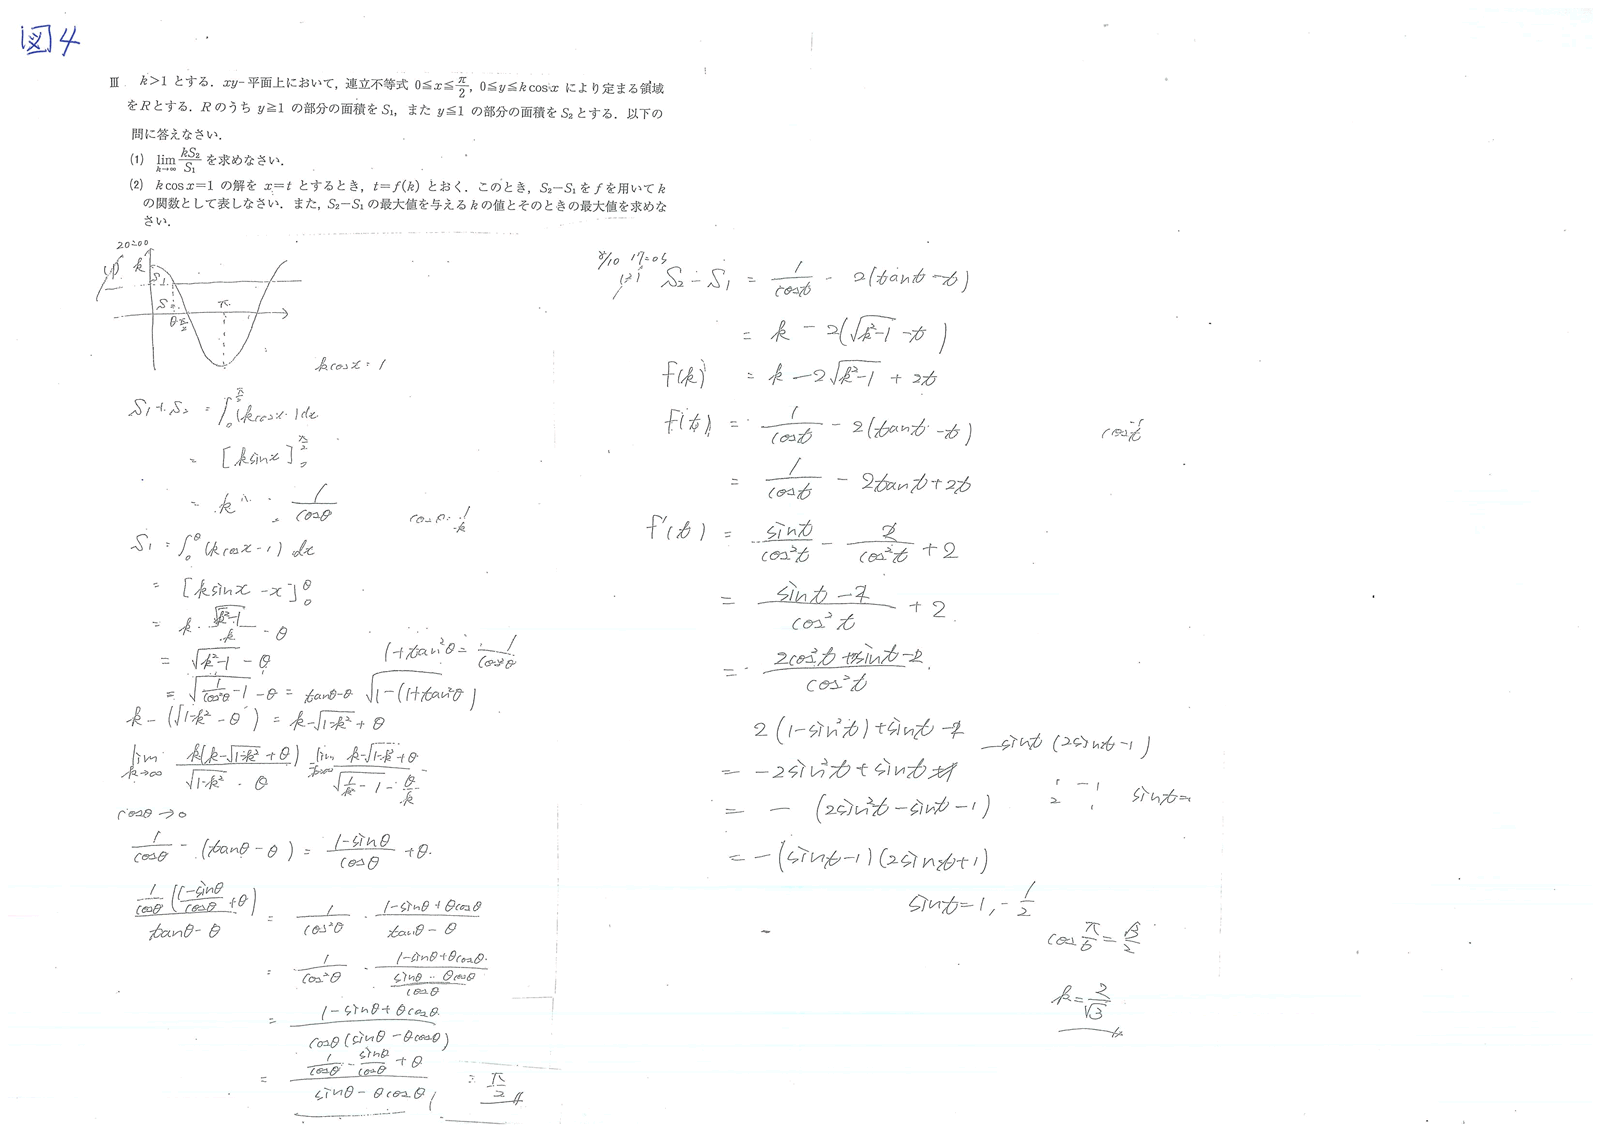 図4
III k>1 とする. xy-平面上において, 連立不等式 0≦x≦π/2, 0≦y≦k cos x により定まる領域
をRとする. Rのうち y≧1 の部分の面積をS₁, また y≦1 の部分の面積をS₂とする. 以下の
問に答えなさい.
(1) lim_{k→∞} kS₂/S₁ を求めなさい.
(2) k cos x=1 の解を x=t とするとき, t=f(k) とおく. このとき, S₂−S₁をfを用いてk
の関数として表しなさい. また, S₂−S₁の最大値を与えるkの値とそのときの最大値を求めな
さい.
20:00
(1) k
S₁
S₂
θ π/2 π
kcosx=1
S₁+S₂ = ∫₀^{π/2} (kcosx) dx
= [ksinx]₀^{π/2}
= k = 1/cosθ
cosθ=1/k
S₁ = ∫₀^θ (kcosx−1) dx
= [ksinx −x]₀^θ
= k・√(k²−1)/k − θ
= √(k²−1) − θ
1+tan²θ = 1/cos²θ
= √(1/cos²θ −1) −θ = tanθ−θ √(1−(1+tan²θ))
k − (√(1−k²) − θ) = k−√(1−k²) + θ
lim_{k→∞} k(k−√(1−k²)+θ)/(√(1−k²) − θ) lim_{k→∞} (k−√(1−k²)+θ)/(√(1/k²−1) − θ/k)
cosθ→0
1/cosθ − (tanθ−θ) = (1−sinθ)/cosθ + θ.
1/cosθ((1−sinθ)/cosθ+θ)/(tanθ−θ) = 1/cos²θ ・ (1−sinθ+θcosθ)/(tanθ−θ)
= 1/cos²θ ・ (1−sinθ+θcosθ)/((sinθ−θcosθ)/cosθ)
= (1−sinθ+θcosθ)/(cosθ(sinθ−θcosθ))
= (1/cosθ − sinθ/cosθ + θ)/(sinθ−θcosθ) = π/2
8/10 17:05
(2) S₂−S₁ = 1/cost − 2(tant−t)
= k − 2(√(k²−1) −t)
f(k) = k −2√(k²−1) + 2t
f(t) = 1/cost − 2(tant −t)
cos⁻¹t
= 1/cost − 2tant+2t
f'(t) = sint/cos²t − 2/cos²t + 2
= (sint−2)/cos²t + 2
= (2cos²t+sint−2)/cos²t
2(1−sin²t)+sint−2
−sint(2sint−1)
= −2sin²t+sint+1
= − (2sin²t−sint−1)
1 −1
2 1
sint=
= −(sint−1)(2sint+1)
sint=1, −1/2
cos π/6 = √3/2
k=2/√3